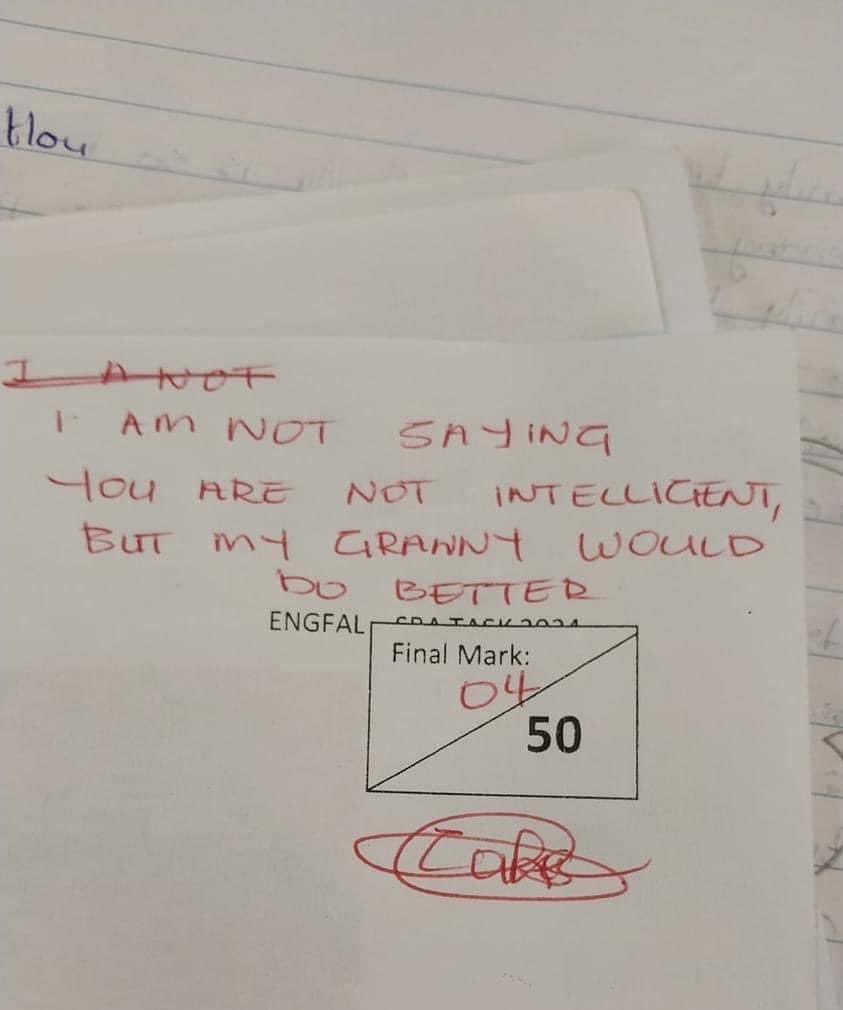 tlou
I A NOT
I AM NOT SAYING
YOU ARE NOT INTELLIGENT,
BUT MY GRANNY WOULD
DO BETTER
ENGFAL TASK 2024
Final Mark:
04
50